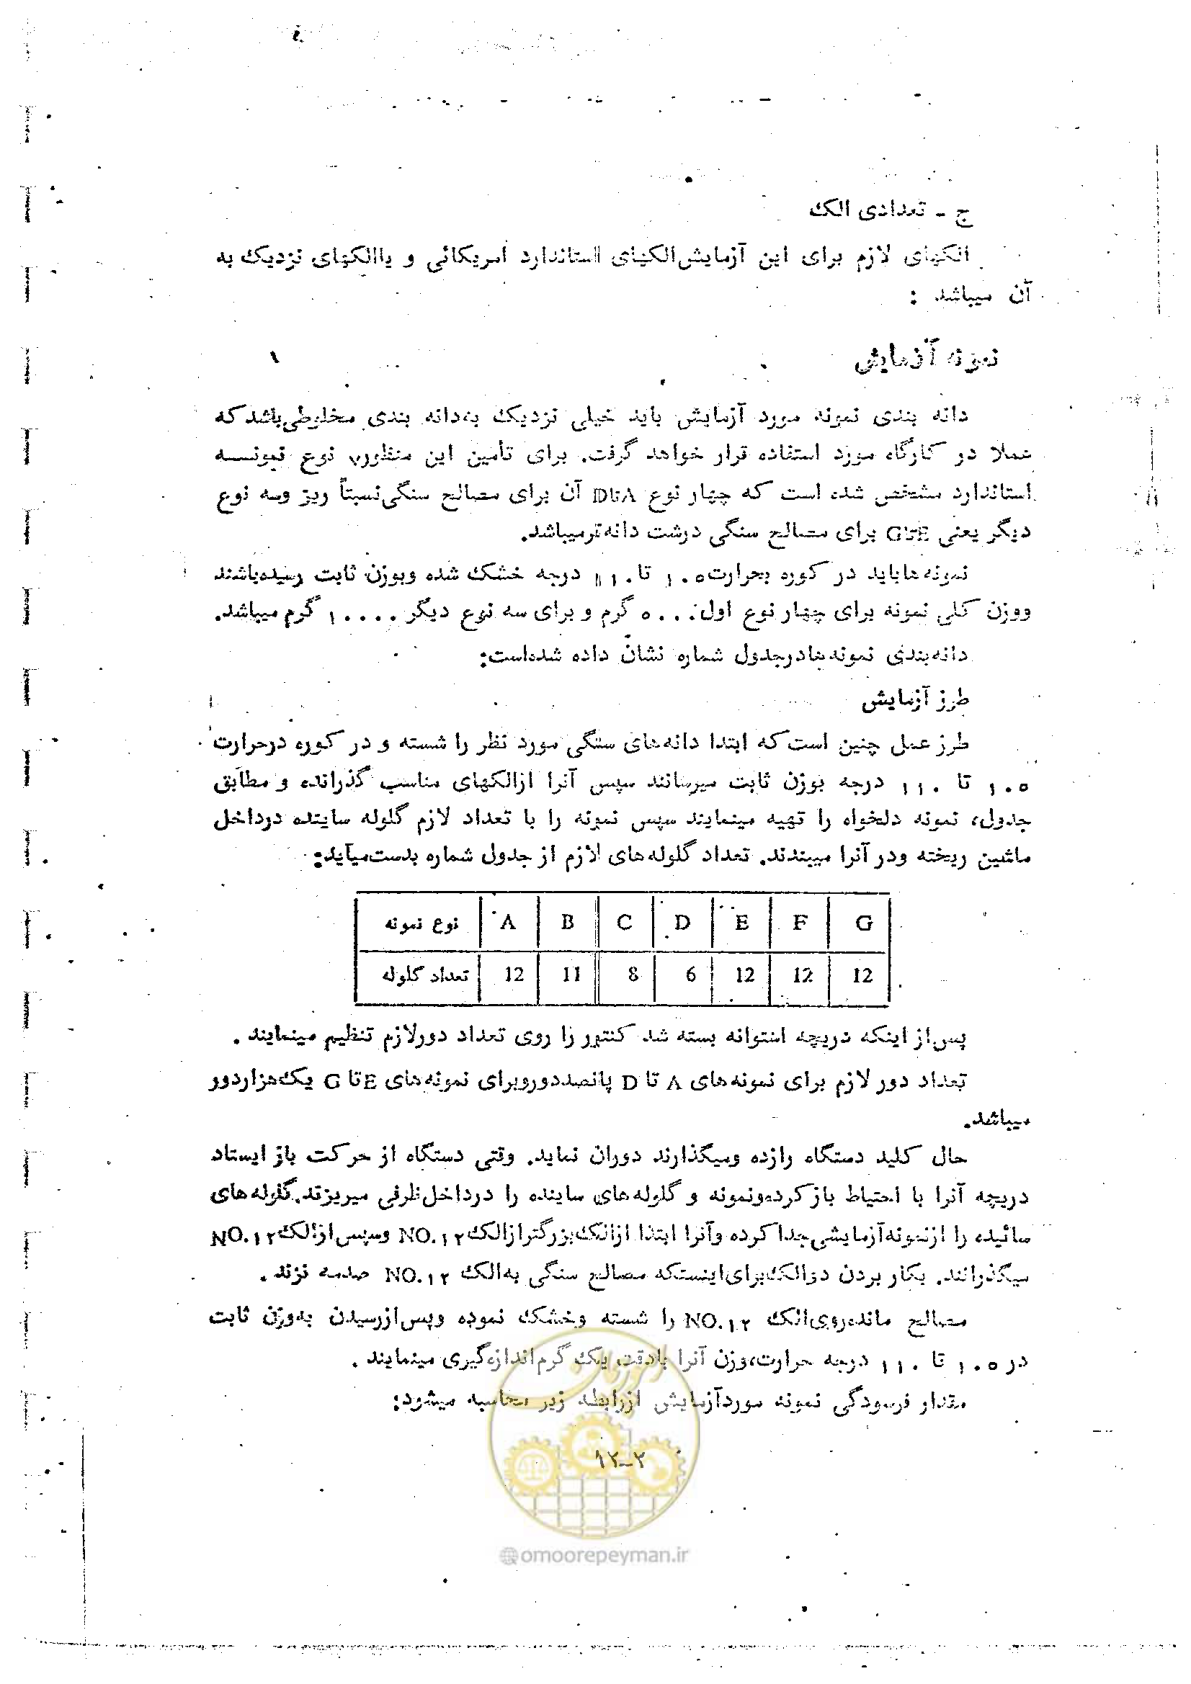 ج - تعدادی الک
الکهای لازم برای این آزمایش الکهای استاندارد امریکائی و یا الکهای نزدیک به
آن میباشد :
نمونه آزمایش
دانه بندی نمونه مورد آزمایش باید خیلی نزدیک به دانه بندی مخلوطی باشد که
عملا در کارگاه مورد استفاده قرار خواهد گرفت. برای تأمین این منظور ۷ نوع نمونه
استاندارد مشخص شده است که چهار نوع A تا D آن برای مصالح سنگی نسبتاً ریز وسه نوع
دیگر یعنی E تا G برای مصالح سنگی درشت دانه تر میباشد.
نمونه ها باید در کوره بحرارت ۱۰۵ تا ۱۱۰ درجه خشک شده و بوزن ثابت رسیده باشند
ووزن کلی نمونه برای چهار نوع اول ۵۰۰۰ گرم و برای سه نوع دیگر ۱۰۰۰۰ گرم میباشد.
دانه بندی نمونه ها در جدول شماره نشان داده شده است:
طرز آزمایش
طرز عمل چنین است که ابتدا دانه های سنگی مورد نظر را شسته و در کوره در حرارت
۱۰۵ تا ۱۱۰ درجه بوزن ثابت میرسانند سپس آنرا از الکهای مناسب گذرانده و مطابق
جدول، نمونه دلخواه را تهیه مینمایند سپس نمونه را با تعداد لازم گلوله ساینده در داخل
ماشین ریخته ودر آنرا میبندند. تعداد گلوله های لازم از جدول شماره بدست میآید:
نوع نمونه A B C D E F G
تعداد گلوله 12 11 8 6 12 12 12
پس از اینکه دریچه استوانه بسته شد کنتور را روی تعداد دور لازم تنظیم مینمایند .
تعداد دور لازم برای نمونه های A تا D پانصد دور و برای نمونه های E تا G یک هزار دور
میباشد.
حال کلید دستگاه را زده و میگذارند دوران نماید. وقتی دستگاه از حرکت باز ایستاد
دریچه آنرا با احتیاط باز کرده و نمونه و گلوله های ساینده را در داخل ظرفی میریزند. گلوله های
سائیده را از نمونه آزمایشی جدا کرده و آنرا ابتدا از الک بزرگتر از الک NO.۱۲ و سپس از الک NO.۱۲
میگذرانند. بکار بردن دو الک برای اینستکه مصالح سنگی به الک NO.۱۲ صدمه نزند .
مصالح مانده روی الک NO.۱۲ را شسته و خشک نموده و پس از رسیدن به وزن ثابت
در ۱۰۵ تا ۱۱۰ درجه حرارت، وزن آنرا با دقت یک گرم اندازه گیری مینمایند .
مقدار فرسودگی نمونه مورد آزمایش از رابطه زیر محاسبه میشود:
۱۲-۳
@omoorepeyman.ir